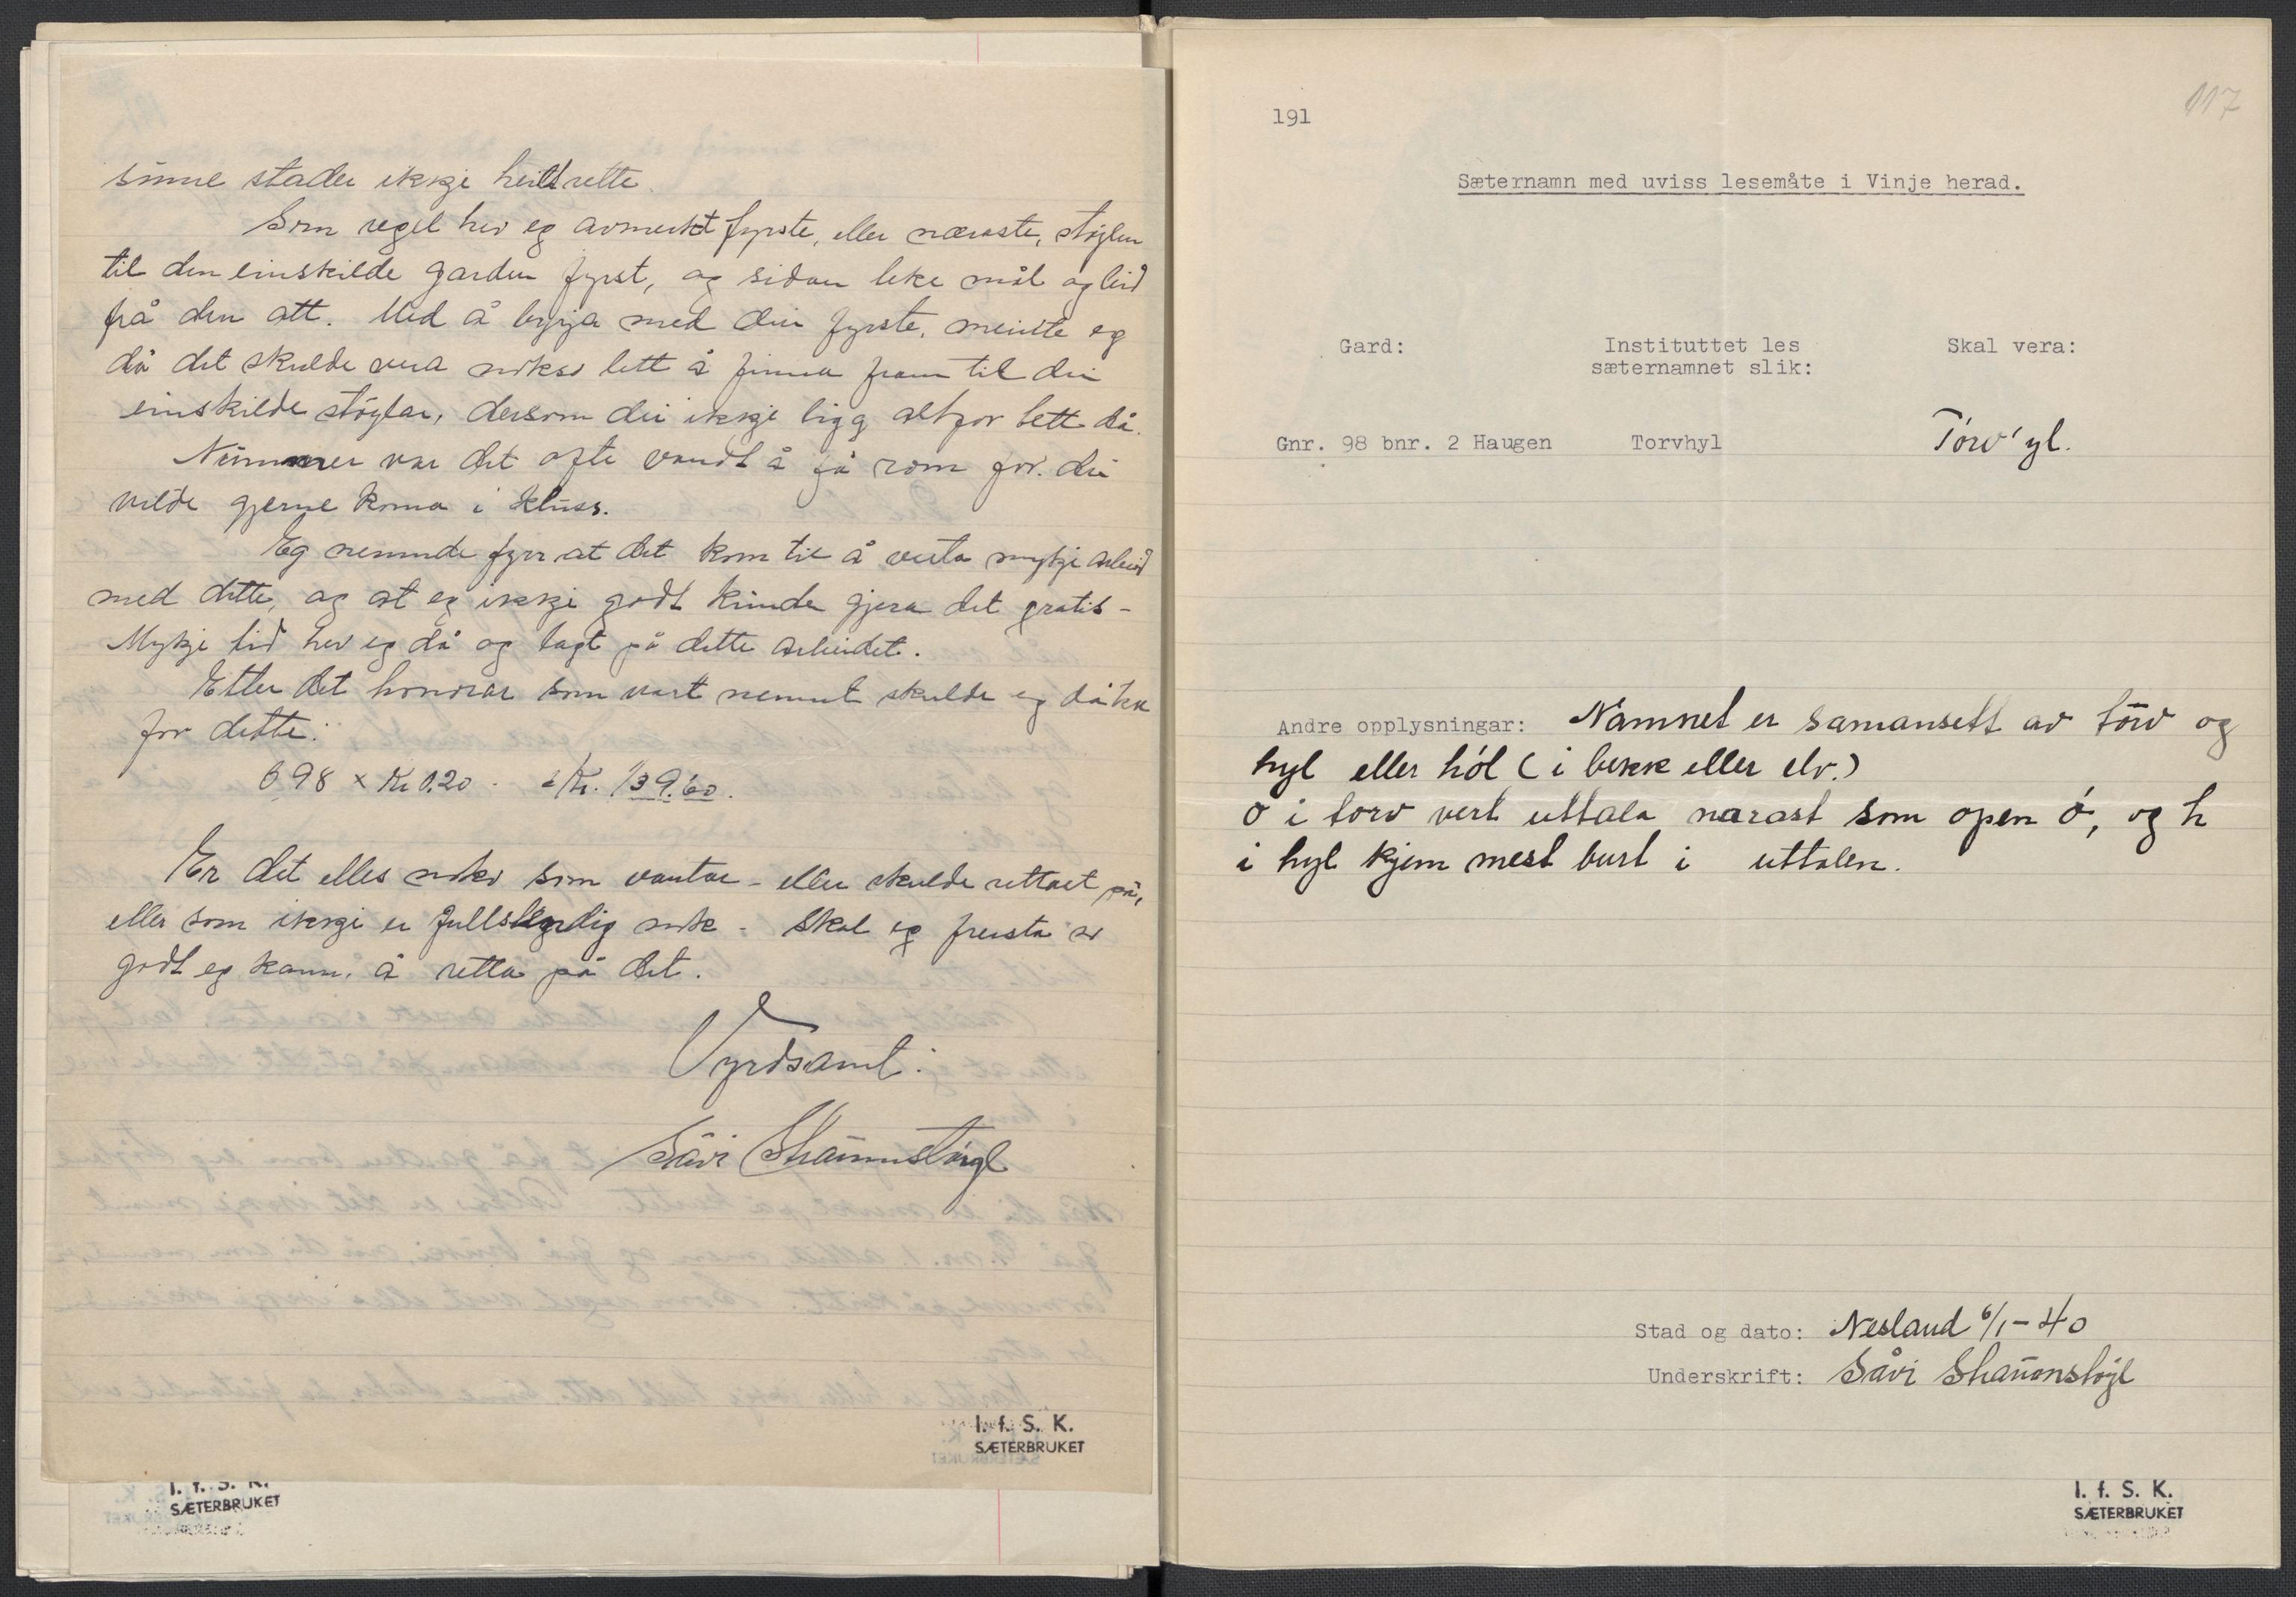 sume stader ikkje heilt rette.
Som regel hev eg avmerkt fyrste, eller næraste, støylen
til den einskilde garden fyrst, og sidan teke mål og leid
frå den att. Med å byrja med din fyrste, meinte eg
då det skulde vera nokso lett å finna fram til dei
einskilde støylar, dersom dei ikkje ligg altfor tett då.
Nummer var det ofte vandt å få rom for. dei
vilde gjerne koma i kluss.
Eg nemnde fyrr at det kom til å verta mykje arbeid
med dette, og at eg ikkje godt kunde gjera det gratis -
Mykje tid hev eg då og lagt på dette arbeidet.
Etter det honorar som vart nemnt skulde eg då ha
for dette:
698 x Kr 0.20 - Kr. 139.60.
Er det elles noko som vantar - eller skulde rettast på,
eller som ikkje er fullstendig nok - skal eg freista so
godt eg kann, å retta på det.
Vyrdsamt:
Såvi Shaunstøyl
I. f. S. K.
SÆTERBRUKET
I. f. S. K.
SÆTERBRUKET
117
191
Sæternamn med uviss lesemåte i Vinje herad.
Gard: Instituttet les sæternamnet slik: Skal vera:
Gnr. 98 bnr. 2 Haugen Torvhyl Tórv'yl.
Andre opplysningar: Namnet er samansett av torv og
hyl eller hól (i bekk eller elv.)
o i torv vert uttala narast som open ó, og h
i hyl kjem mest burt i uttalen.
Stad og dato: Nesland 6/1-40
Underskrift: Såvi Shaunonstøyl
I. f. S. K.
SÆTERBRUKET